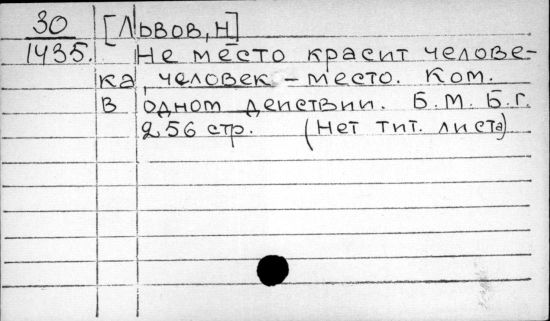 30 [Львов, Н]
1435. Не место красит челове-
ка, человек - место. Ком.
в одном действии. Б.М. Б.г.
256 стр. (Нет тит. листа)